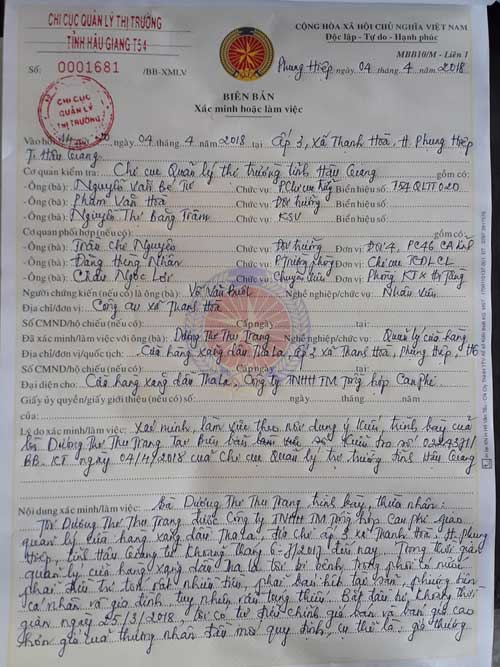 CHI CỤC QUẢN LÝ THỊ TRƯỜNG
TỈNH HẬU GIANG T54
Số: 0001681 /BB-XMLV
CHI CỤC
QUẢN LÝ
THỊ TRƯỜNG
CỘNG HÒA XÃ HỘI CHỦ NGHĨA VIỆT NAM
Độc lập - Tự do - Hạnh phúc
MBB10/M - Liên 1
Phụng Hiệp ngày 04 tháng 4 năm 2018
BIÊN BẢN
Xác minh hoặc làm việc
Vào hồi ngày 04 tháng 4 năm 2018 tại Ấp 3, xã Thạnh Hoà, H. Phụng Hiệp
T. Hậu Giang
Cơ quan kiểm tra: Chi cục Quản lý thị trường tỉnh Hậu Giang gồm có:
- Ông (bà): Nguyễn Văn Bé Tư Chức vụ: PChi cục trưởng Biển hiệu số: T54 QLTT 020
- Ông (bà): Phạm Văn Hoà Chức vụ: Đội trưởng Biển hiệu số:
- Ông (bà): Nguyễn Thị Băng Trâm Chức vụ: KSV Biển hiệu số:
Cơ quan phối hợp (nếu có): gồm có:
- Ông (bà): Trần Chí Nguyễn Chức vụ: Đội trưởng Đơn vị: Đội 4, PC46 CA
- Ông (bà): Đặng Hồng Nhân Chức vụ: P trưởng phòng Đơn vị: Chi cục TCĐLCL
- Ông (bà): Châu Ngọc Lợi Chức vụ: Chuyên viên Đơn vị: Phòng KTX Hạ Tầng
Người chứng kiến (nếu có) là ông (bà): Võ Văn Nghề nghiệp/chức vụ: Nhân viên
Địa chỉ/đơn vị: Công an xã Thạnh Hoà
Số CMND/hộ chiếu (nếu có): Cấp ngày tại:
Đã xác minh/làm việc với ông (bà): Dương Thị Thu Trang Nghề nghiệp/chức vụ: Quản lý cửa hàng
Địa chỉ/đơn vị/quốc tịch: Cửa hàng xăng dầu Tha La, ấp 3 xã Thạnh Hoà, Phụng Hiệp, HG
Số CMND/hộ chiếu (nếu có): Cấp ngày tại:
Đại diện cho: Cửa hàng xăng dầu Tha La, Công ty TNHH TM Tổng hợp Can Phí
Giấy ủy quyền/giấy giới thiệu (nếu có) số ngày
của:
Lý do xác minh/làm việc: Xác minh, làm việc theo nội dung ý kiến trình bày của
bà Dương Thị Thu Trang Tại Biên bản làm việc số kiểm tra số
BB.KT ngày 04/4/2018 của Chi cục Quản lý thị trường tỉnh Hậu Giang
Nội dung xác minh/làm việc: Bà Dương Thị Thu Trang trình bày, thừa nhận:
Tôi Dương Thị Thu Trang được Công ty TNHH TM Tổng hợp Can phí giao
quản lý cửa hàng xăng dầu Tha La, địa chỉ ấp 3 xã Thạnh Hoà, H. Phụng
Hiệp, tỉnh Hậu Giang từ khoảng tháng 6-8/2017 đến nay. Trong thời gian
quản lý cửa hàng xăng dầu Tha La tôi bị bệnh trong phổi có nước
phải điều trị tốn rất nhiều tiền, phải bán hết tài sản, phương tiện
cá nhân và gia đình tuy nhiên vẫn túng thiếu. Bắt đầu từ khoảng thời
gian ngày 25/3/2018 tôi có tự điều chỉnh giá bán và bán giá cao
hơn giá của thương nhân đầu mối quy định, cụ thể là: giá thương